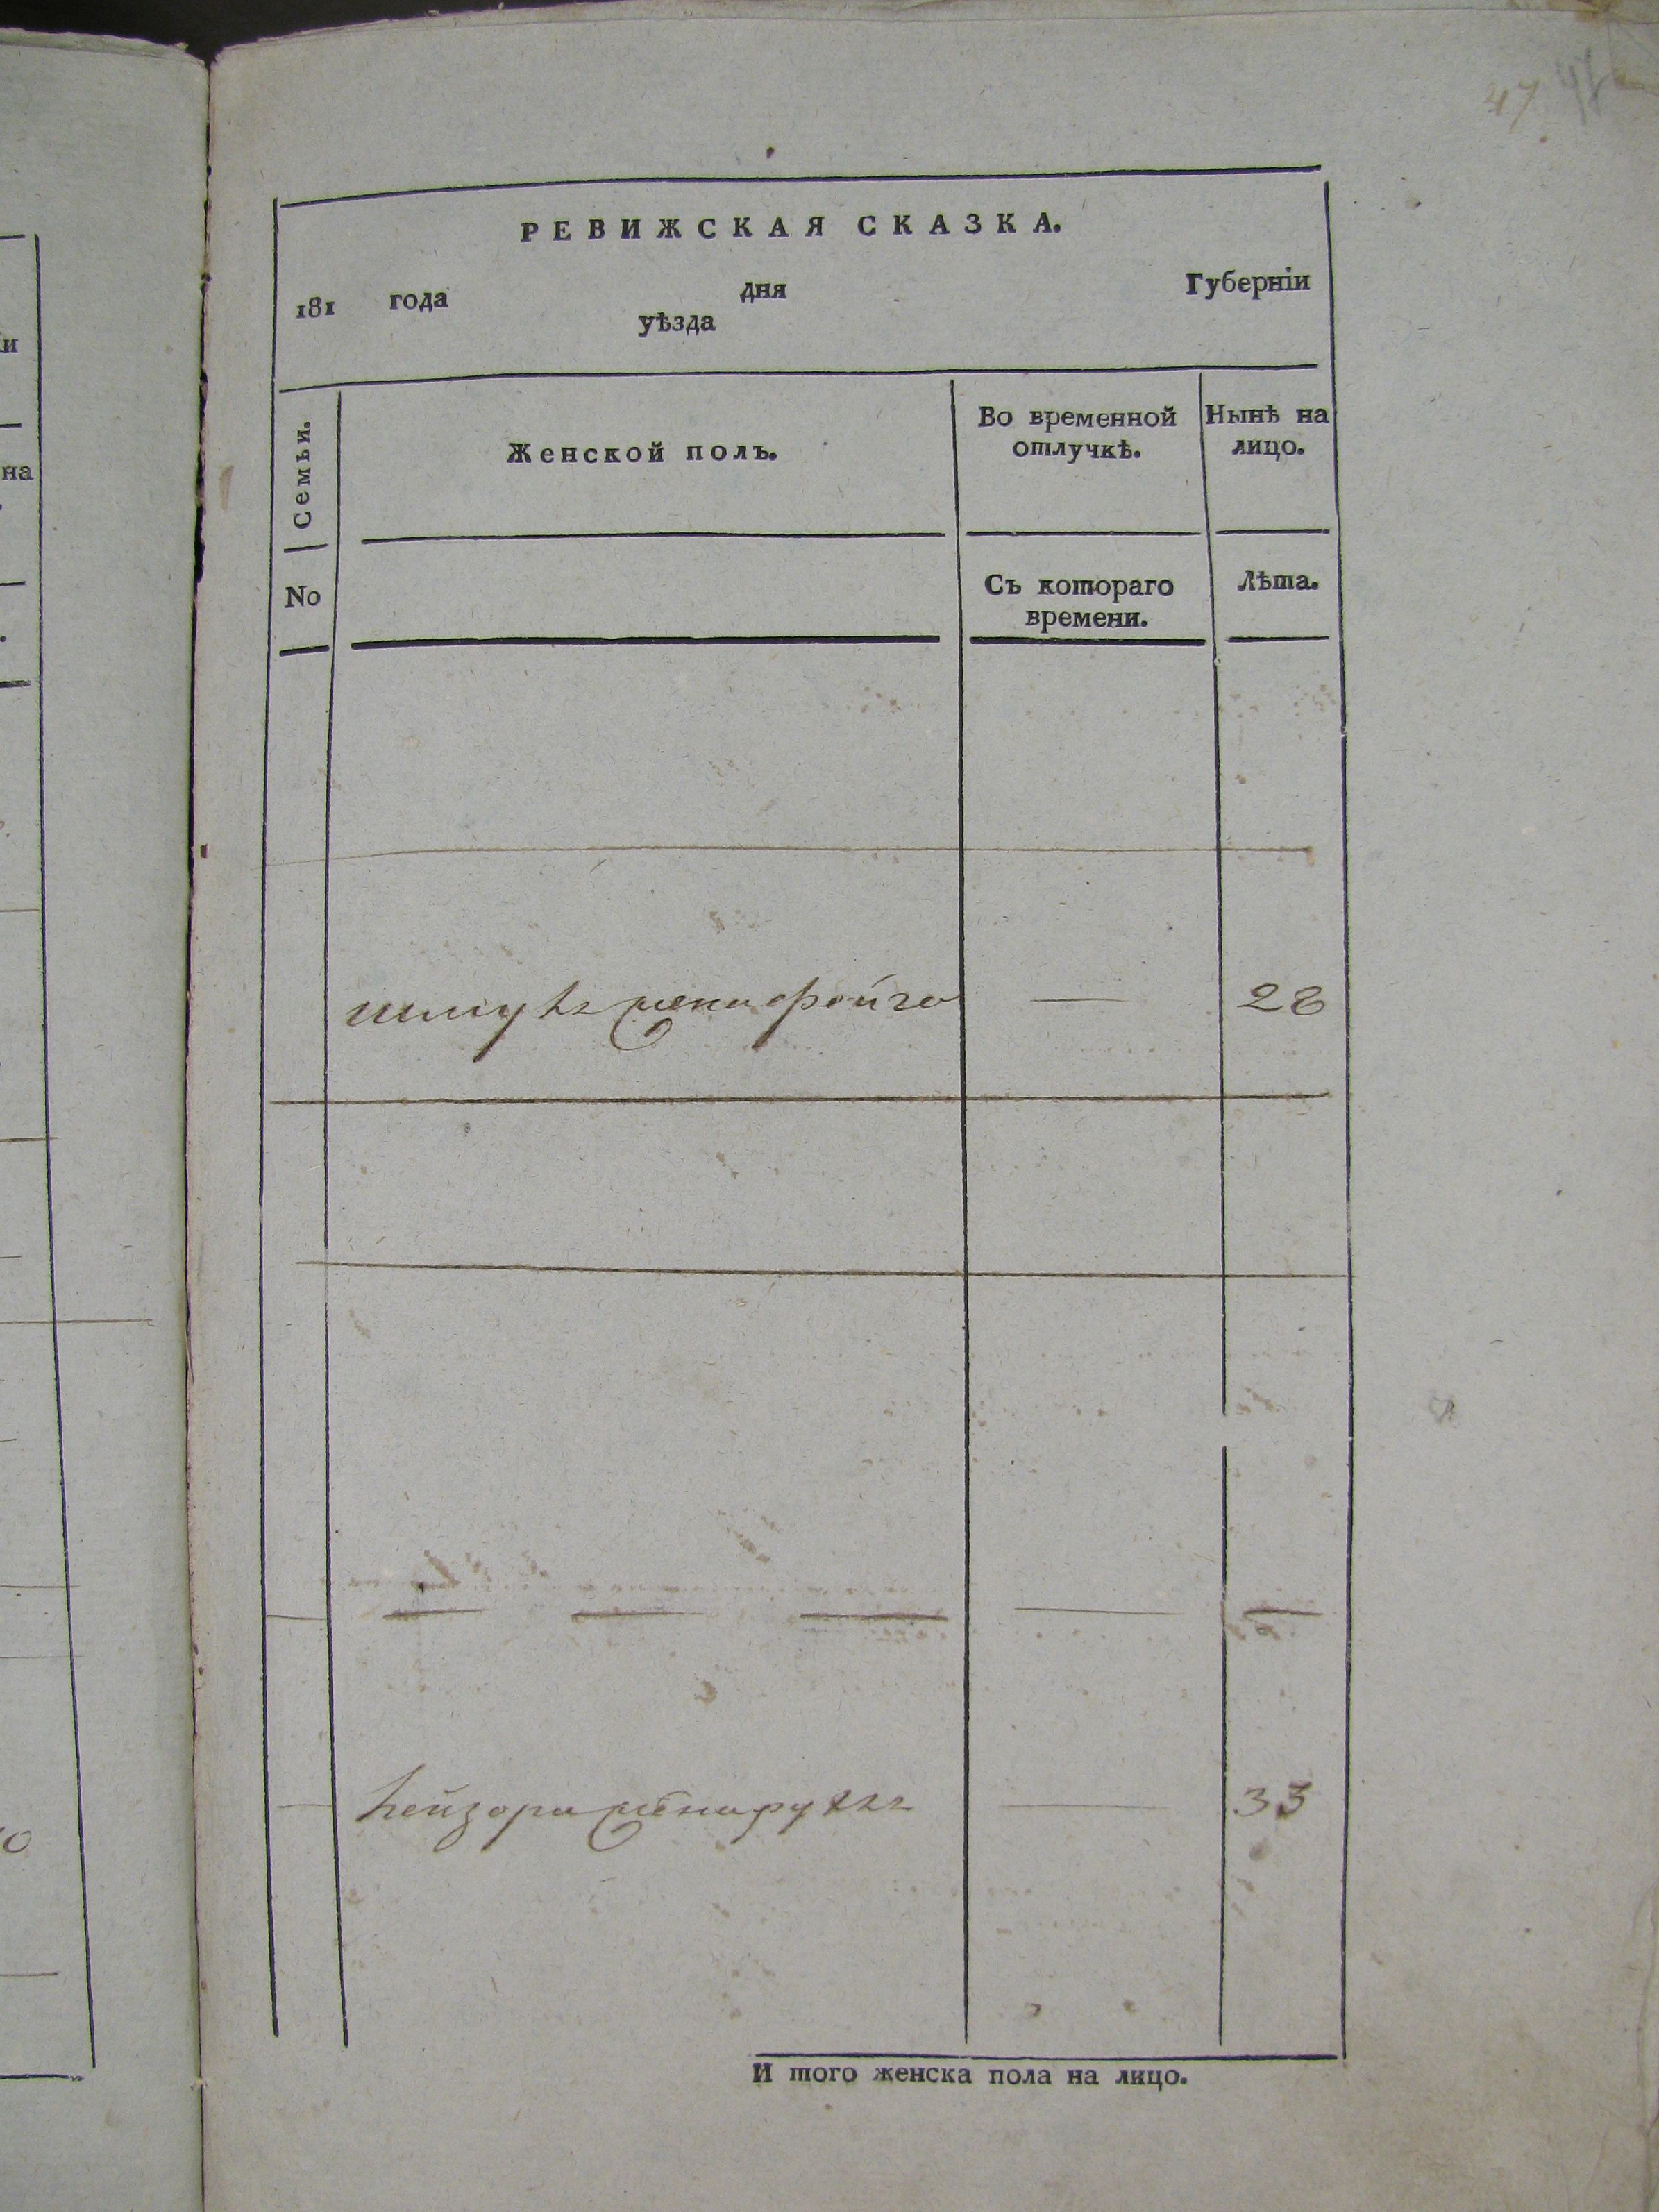 47 47
РЕВИЖСКАЯ СКАЗКА.
181 года дня Губерніи
уѣзда
Семьи.
Женской полъ.
Во временной
отлучкѣ.
Нынѣ на
лицо.
No
Съ котораго
времени.
Лѣта.
шмуля жена фейга — 28
лейзора жена рухля — 33
И того женска пола на лицо.
и
на